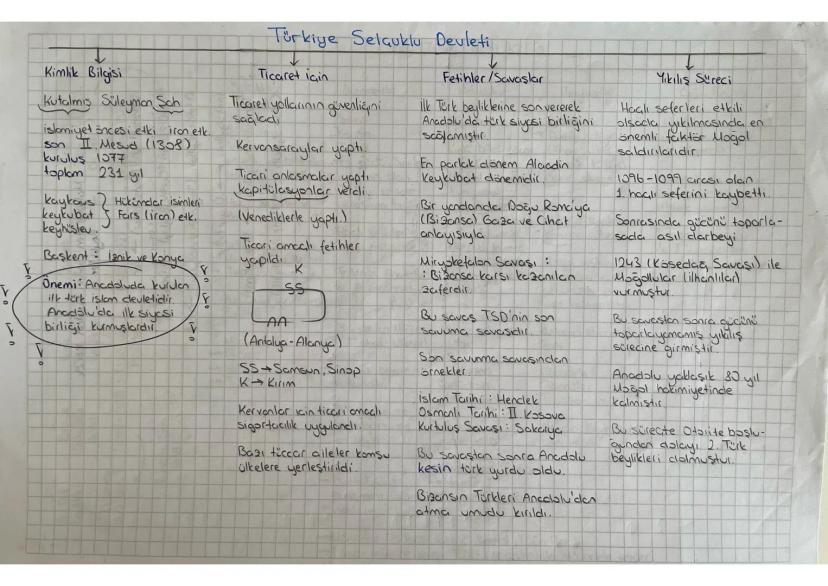 Türkiye Selçuklu Devleti
Kimlik Bilgisi
Kutalmış Süleyman Şah
islamiyet öncesi etki iran etk.
son II. Mesud (1308)
kuruluş 1077
toplam 231 yıl
kaykavs
keykubat
keyhüslev
Hükümdar isimleri
Fars (iran) etk.
Başkent: İznik ve Konya
Önemi: Anadoluda kurulan
ilk türk islam devletidir.
Anadolu'da ilk siyasi
birliği kurmuşlardır.
Ticaret için
Ticaret yollarının güvenliğini
sağladı
Kervansaraylar yaptı.
Ticari anlaşmalar yaptı
kapitülasyonlar verdi.
(Venediklerle yaptı.)
Ticari amaçlı fetihler
yapıldı
K
SS
AA
(Antalya-Alanya)
SS→Samsun, Sinop
K→Kırım
Kervanlar için ticari amaçlı
sigortacılık uygulandı.
Bazı tüccar aileler komşu
ülkelere yerleştirildi.
Fetihler/Savaşlar
İlk Türk beyliklerine son vererek
Anadolu'da türk siyasi birliğini
sağlamıştır.
En parlak dönem Alaadin
Keykubat dönemidir.
Bir yandanda Doğu Romaya
(Bizansa) Gaza ve Cihat
anlayışıyla
Miryokefalon Savaşı :
: Bizansa karşı kazanılan
zaferdir.
Bu savaş TSD'nin son
savunma savaşıdır.
Son savunma savaşından
örnekler
İslam Tarihi: Hendek
Osmanlı Tarihi: II. Kosova
Kurtuluş Savaşı: Sakarya
Bu savaştan sonra Anadolu
kesin türk yurdu oldu.
Bizansın Türkleri Anadolu'dan
atma umudu kırıldı.
Yıkılış Süreci
Haçlı seferleri etkili
olsada yıkılmasında en
önemli faktör Moğol
saldırılarıdır.
1096-1099 arası olan
1. haçlı seferini kaybetti.
Sonrasında gücünü toparla-
sada asıl darbeyi
1243 (Kösedağ Savaşı) ile
Moğollular (ilhanlılar)
vurmuştur.
Bu savaştan sonra gücünü
toparlayamamış yıkılış
sürecine girmiştir.
Anadolu yaklaşık 80 yıl
Moğol hakimiyetinde
kalmıştır.
Bu süreçte Otorite boşlu-
ğundan dolayı 2. Türk
beylikleri